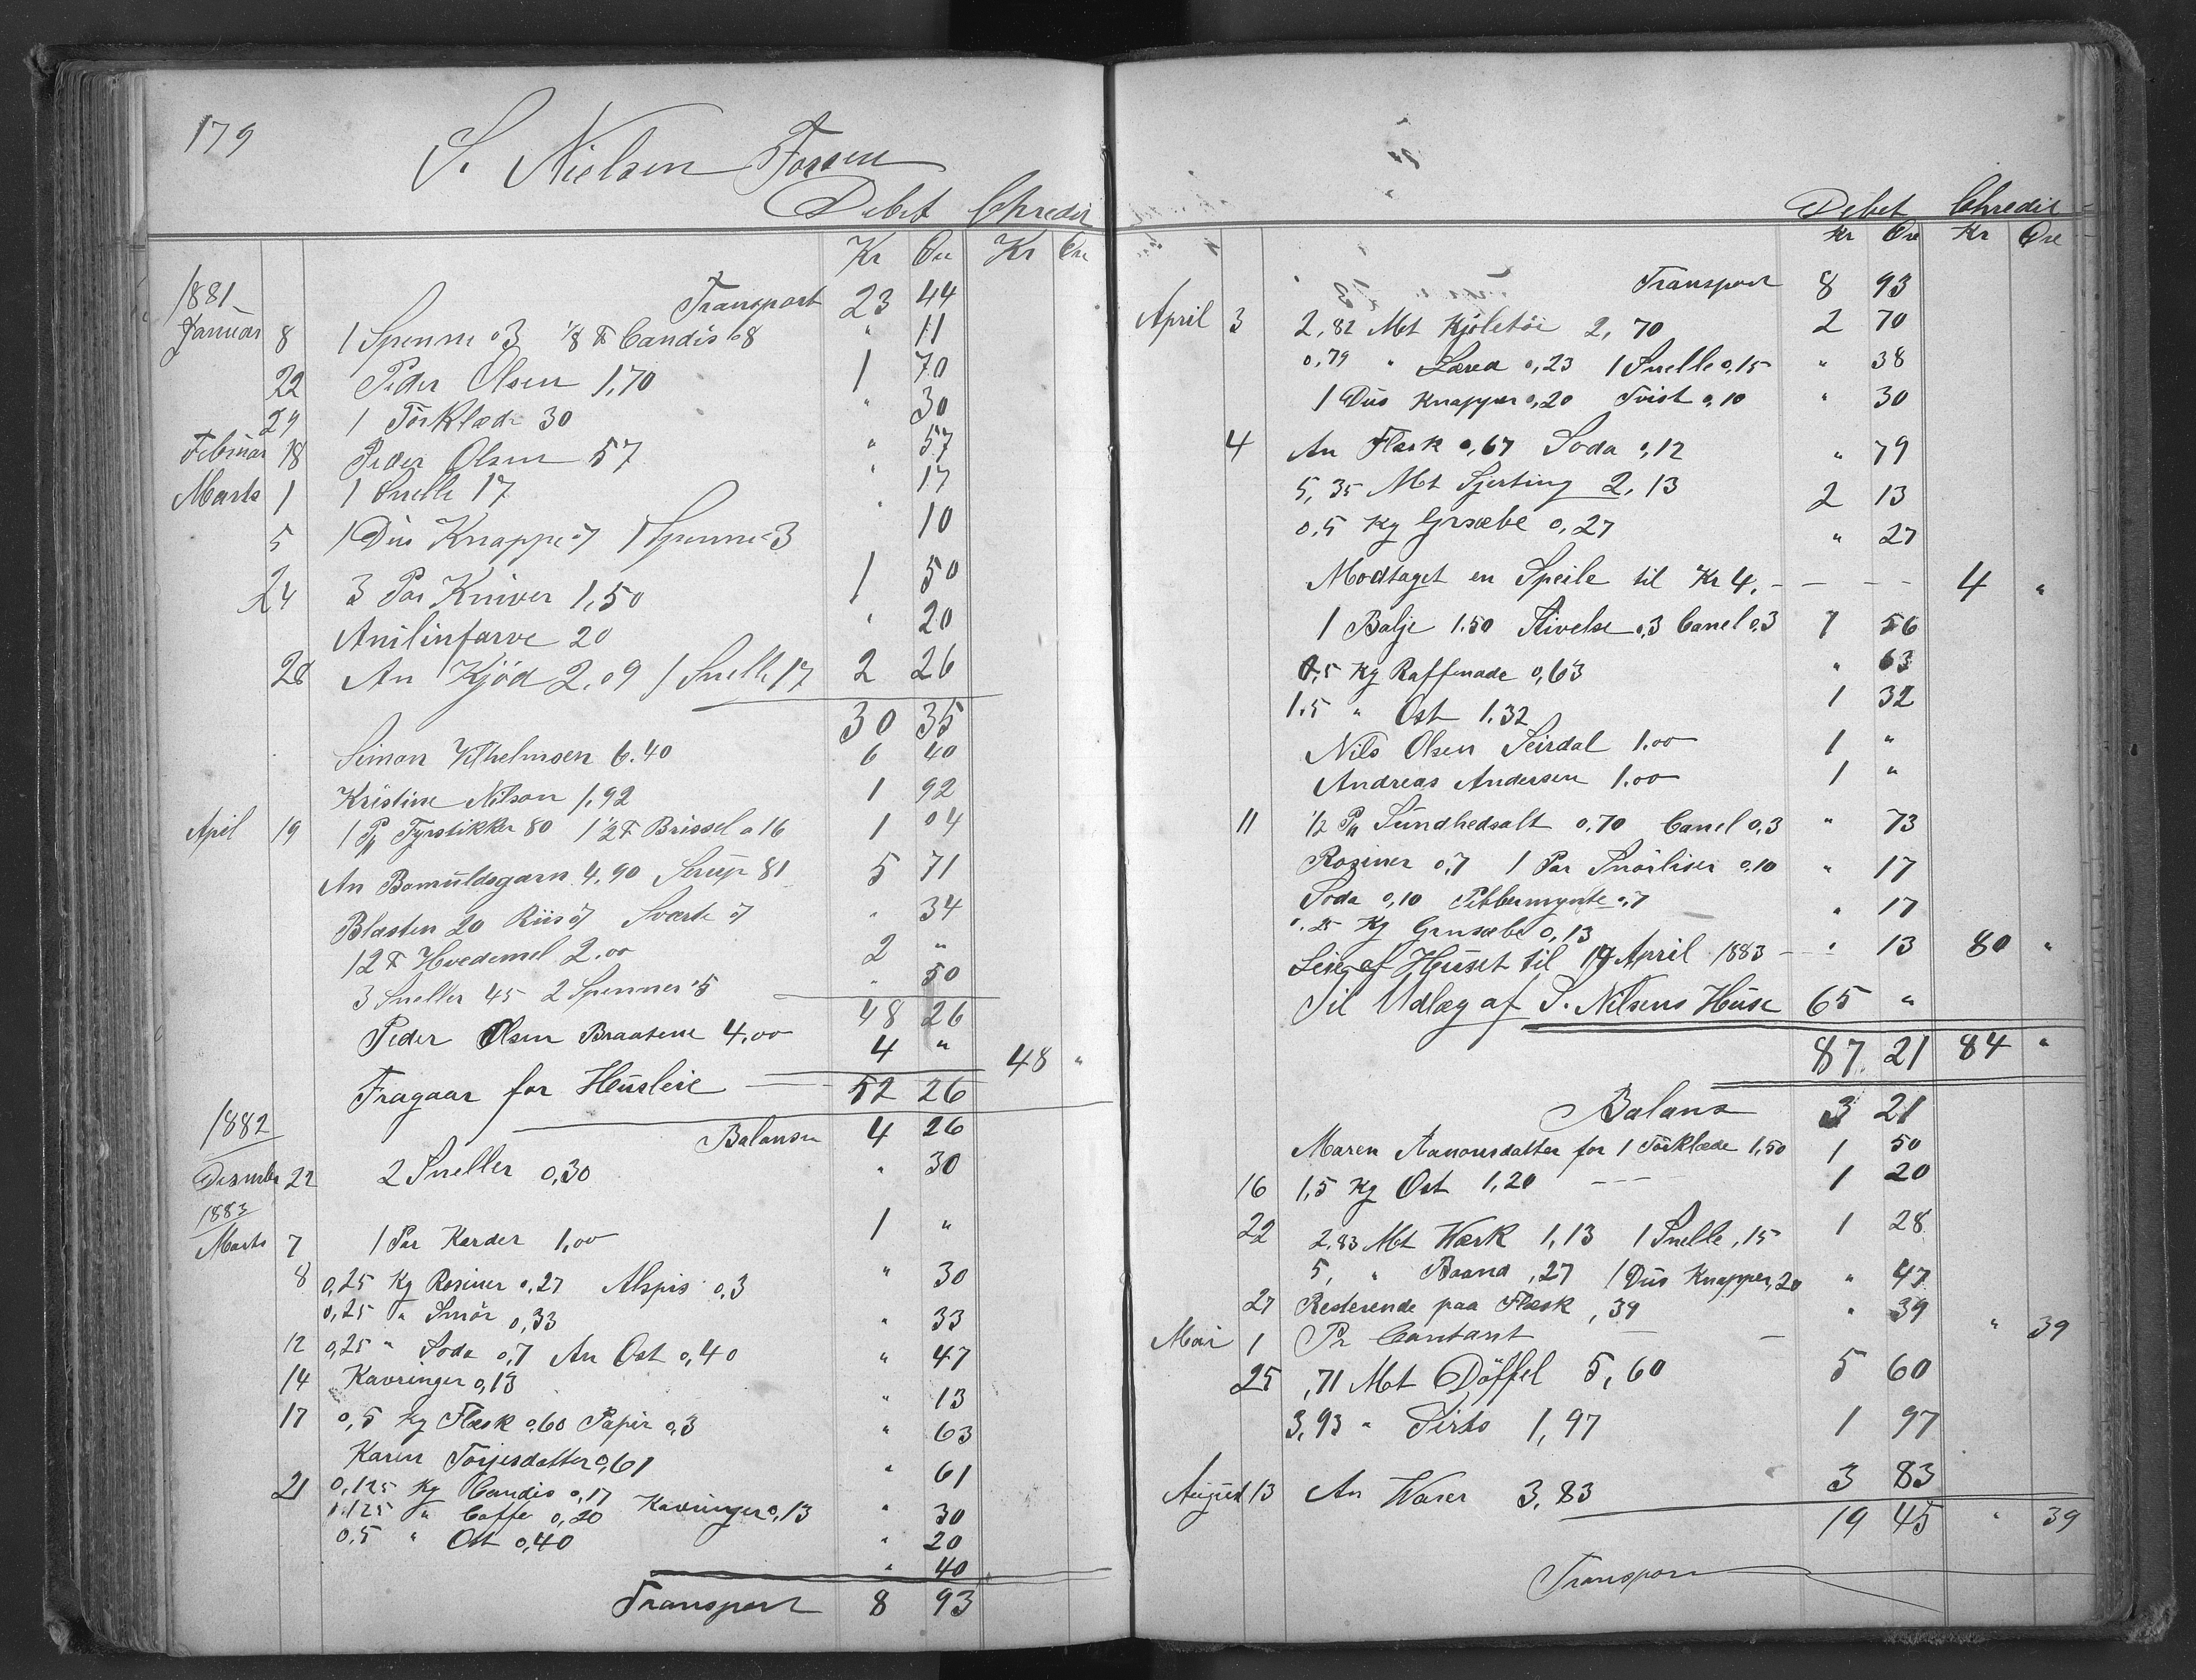 179
S. Nielsen Fossen
Debet Chredit
Kr Øre Kr Øre
1881
Transport 23 44
Januar 8 1 Spenne 03 1/8 ℔ Candis 08 " 11
22 Peder Olsen 1,70 1 70
29 1 Törklæde 30 " 30
Februar 18 Peder Olsen 57 " 57
Marts 1 1 Snelle 17 " 17
5 1 Dus Knappe 07 1 Spenne 03 " 10
24 3 Par Kniver 1,50 1 50
Anilinfarve 20 " 20
28 An Kjöd 2,09 1 Snelle 17 2 26
30 35
Simon Vilhelmsen 6.40 6 40
Kristine Nilson 1,92 1 92
April 19 1 Pk Fyrstikker 80 1 1/2 ℔ Brissel a 16 1 04
An Bomuldsgarn 4,90 Sirup 81 5 71
Blasten 20 Riis 07 Sværte 07 " 34
12 ℔ Hvedemel 2.00 2 "
3 Sneller 45 2 Spenner 05 " 50
48 26
Peder Olsen Braatene 4,00 4 "
Fragaar for Husleie 48 "
52 26
1882
Balanse 4 26
Desember 22 2 Sneller 0,30 " 30
1883
Marts 7 1 Par Karder 1,00 1 "
8 0,25 Kg Rosiner 0,27 Alspis 0,3 " 30
0,25 " Smör 0,33 " 33
12 0,25 " Soda 0,7 An Ost 0,40 " 47
14 Kavringer 0,13 " 13
17 0,5 Kg Flæsk 0,60 Papir 0,3 " 63
Karen Torjesdatter 0,61 " 61
21 0,125 Kg Candis 0,17 Kavringer 0,13 " 30
0,125 " Caffe 0,20 " 20
0,5 " Ost 0,40 " 40
Transport 8 93
Debet Chredit
Kr Øre Kr Øre
Transport 8 93
April 3 2,82 Mt Kjöletöi 2,70 2 70
0,79 " Lærred 0,23 1 Snelle 0,15 " 38
1 Dus Knapper 0,20 Tvist 0,10 " 30
4 An Flæsk 0,67 Soda 0,12 " 79
5,35 Mt Sjerting 2,13 2 13
0,5 Kg Grsæbe 0,27 " 27
Modtaget en Speile til Kr 4,- - - - 4 "
1 Balje 1.50 Stivelse 0,3 Canel 0,3 1 56
0,5 Kg Raffenade 0,63 " 63
1.5 " Ost 1.32 1 32
Nils Olsen Seirdal 1.00 1 "
Andreas Andersen 1.00 1 "
11 1/2 Pk Sundhedsalt 0,70 Canel 0,3 " 73
Rosiner 0,7 1 Par Snörliser 0,10 " 17
Soda 0,10 Pebbermynte 0,7 " 17
0,25 Kg Grnsæbe 0,13 " 13
Leie af Huset til 19 April 1883 - 80 "
Til Udlæg af S. Nilsens Huse 65 "
87 21 84 "
Balans 3 21
Maren Aanonsdatter for 1 Törklæde 1,50 1 50
16 1,5 Kg Ost 1,20 - - - 1 20
22 2,83 Mt Værk 1,13 1 Snelle ,15 1 28
5, " Baand ,27 1 Dus Knapper ,20 " 47
27 Resterende paa Flæsk ,39 " 39
Mai 1 Pr Contant - - " 39
25 ,71 Mt Döffel 5,60 5 60
3,93 " Sirts 1,97 1 97
August 13 An Varer 3,83 3 83
19 45 " 39
Transport